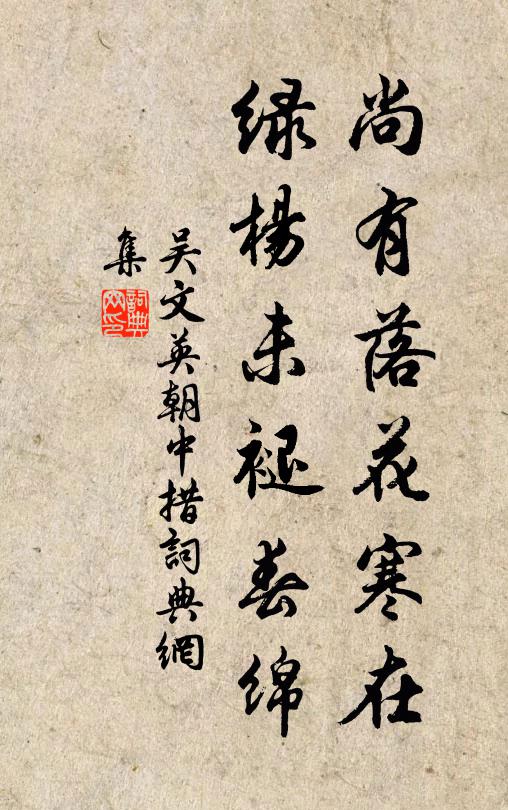 尚有落花寒在
绿杨未褪春绵
吴文英朝中措詞典網
集
詞典網印